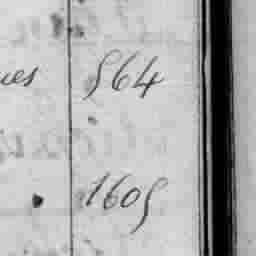 ues 564
1605